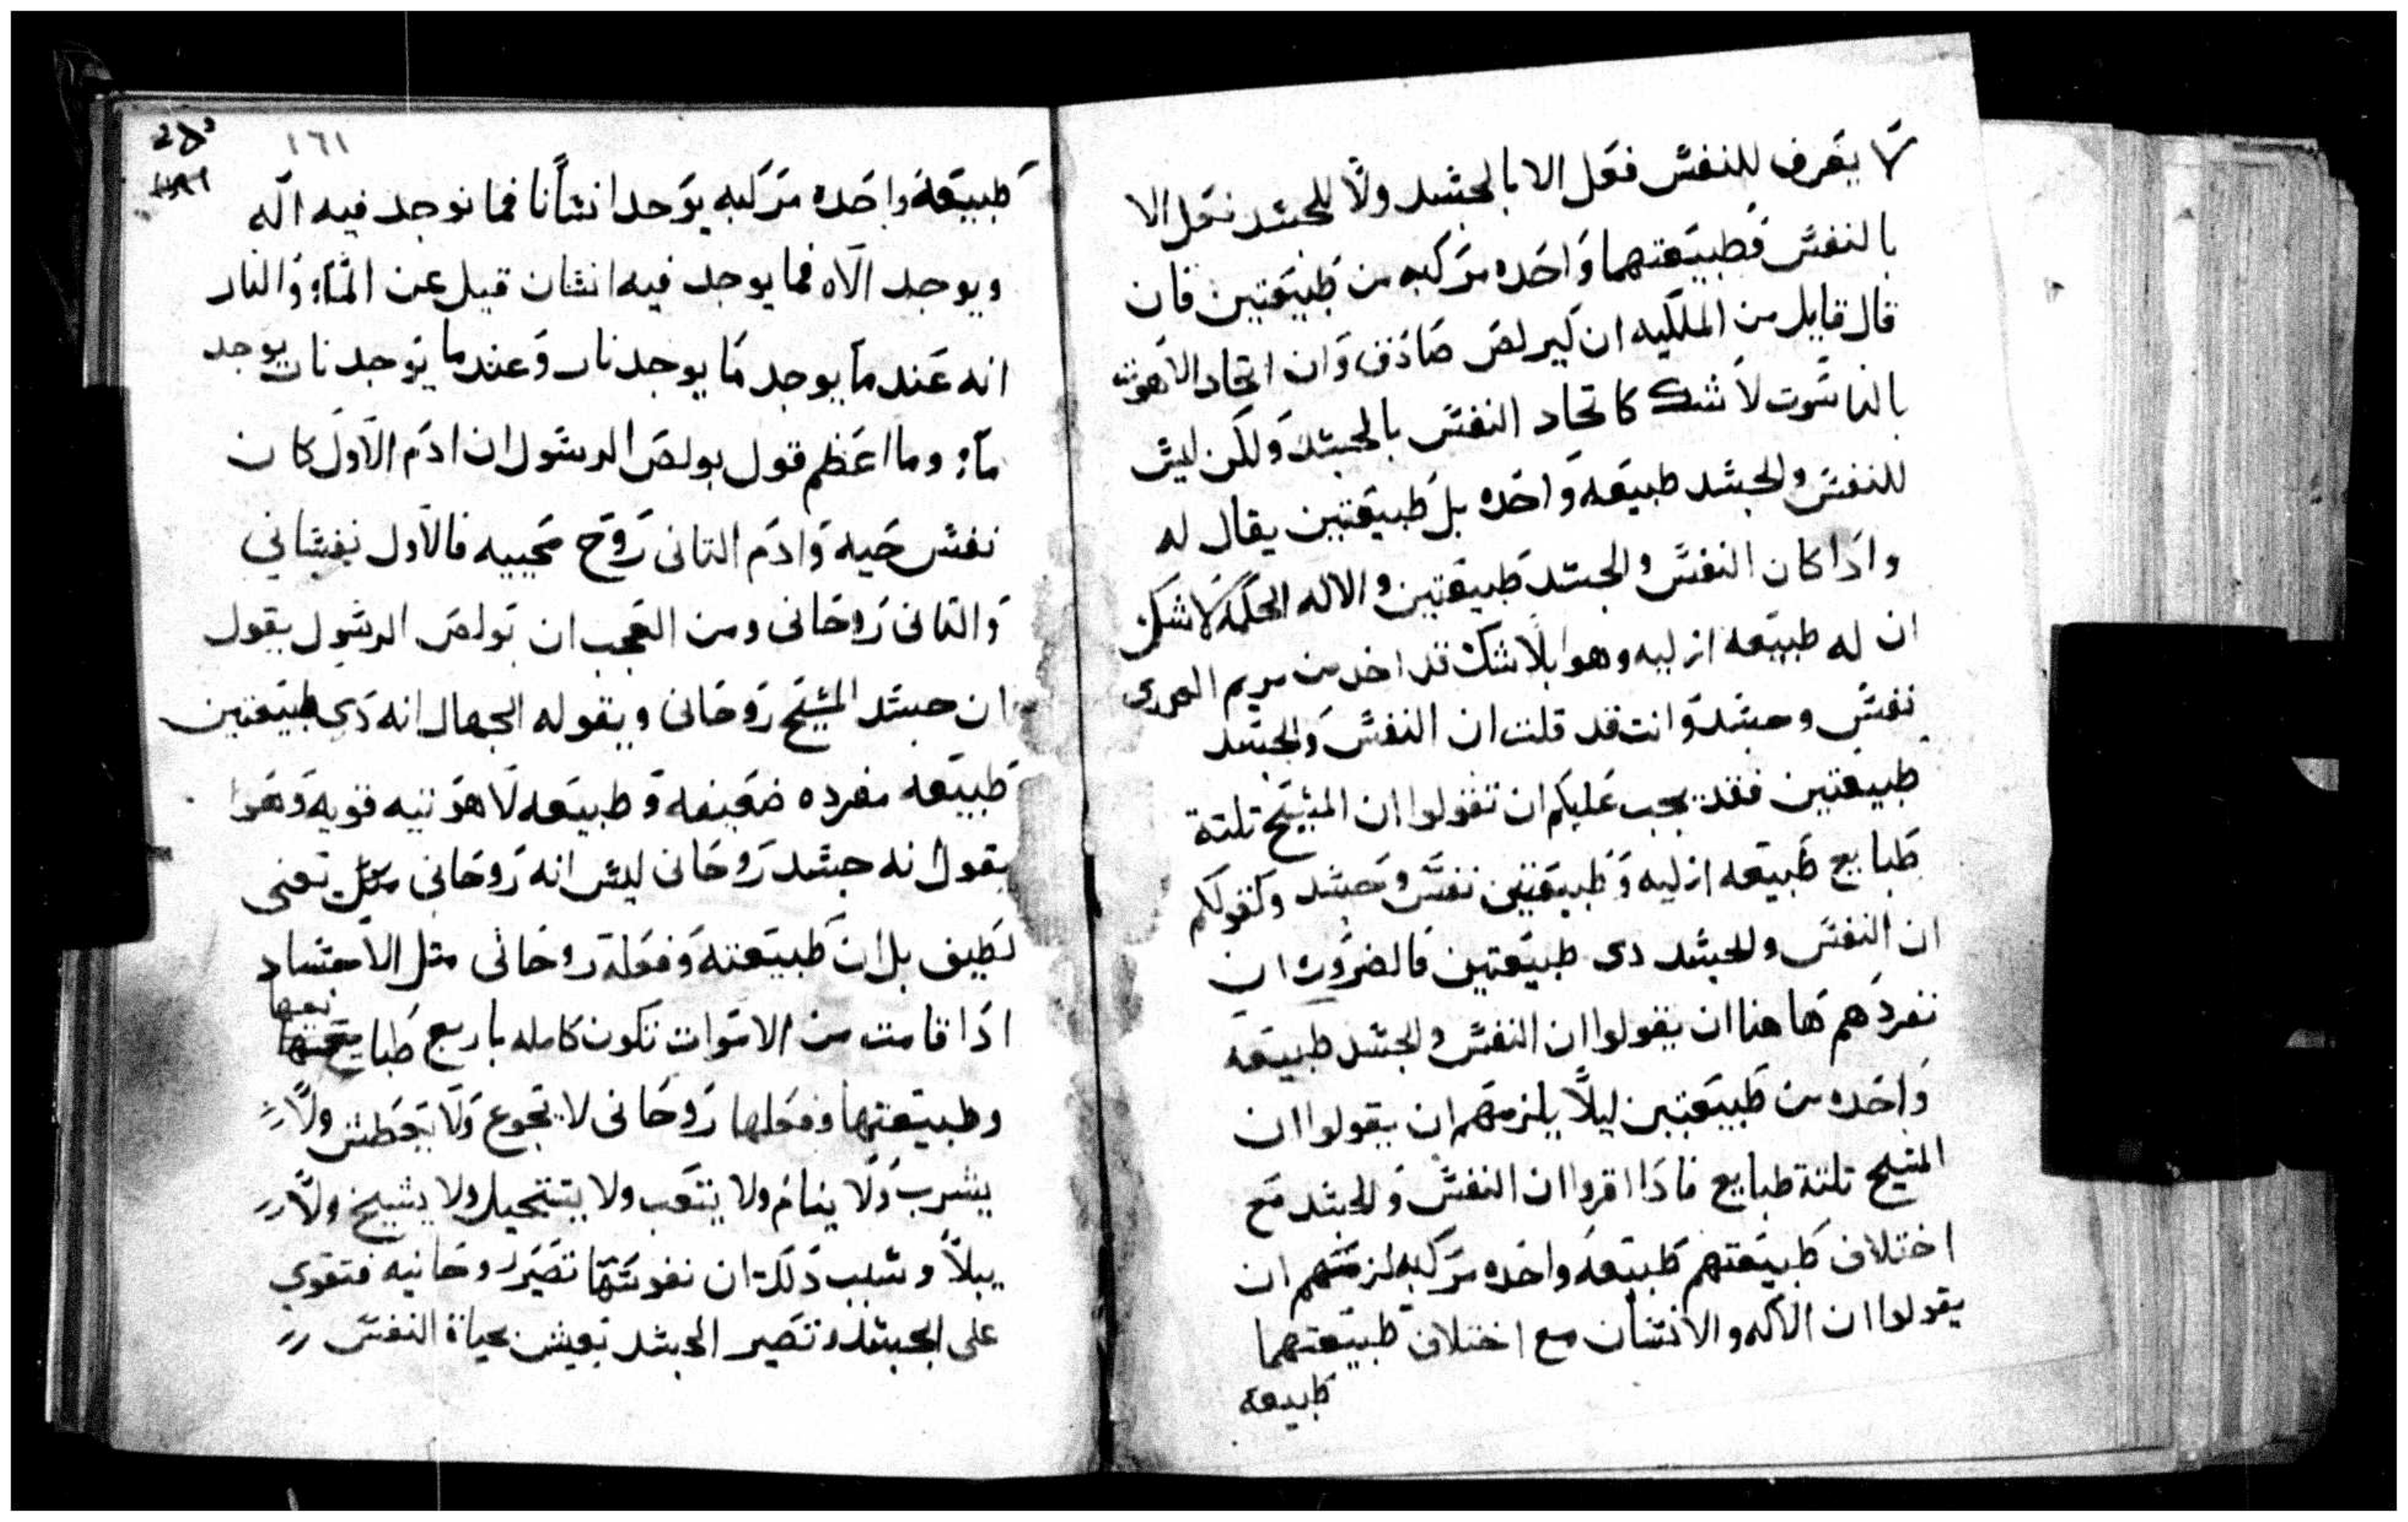 لا يعرف للنفس فعل الا بالجسد ولا للجسد فعل الا
بالنفس فطبيعتهما واحده مركبه من طبيعتين فان
قال قايل من الملكيه ان كيرلص صادق وان اتحاد الاهوت
بالناسوت لا شك كاتحاد النفس بالجسد ولكن ليس
للنفس والجسد طبيعه واحده بل طبيعتين يقال له
واذا كان النفس والجسد طبيعتين والاله الحكمه لا شك
ان له طبيعه ازليه وهوا بلا شك قد اخد من مريم العدرى
نفس وجسد وانت قد قلت ان النفس والجسد
طبيعتين فقد يجب عليكم ان تقولوا ان المسيح تلتة
طبايع طبيعه ازليه وطبيعتين نفس وجسد وكقولكم
ان النفس والجسد دى طبيعتين فالضروره ان
نفردهم هاهنا ان يقولوا ان النفس والجسد طبيعه
واحده من طبيعتين ليلا يلزمهم ان يقولوا ان
المسيح تلتة طبايع فاذا اقروا ان النفس والجسد مع
اختلاف طبيعتهم طبيعه واحده مركبه لزمتهم ان
يقولوا ان الاله والانسان مع اختلاف طبيعتهما
طبيعه
١٦١
طبيعة واحده مركبه يوحد انسانا فما نوجد فيه اله
ويوجد الاه فما يوجد فيه انسان قيل عن الماء والنار
انه عند ما يوجد ما يوجد نار وعندما يوجد نار يوجد
ماء وما اعظم قول بولص الرسول ان ادم الاول كان
نفس حيه وادم التانى روح محييه فالاول نفساني
والتانى روحانى ومن العجب ان بولص الرسول يقول
ان جسد المسيح روحانى ويقوله الجهال انه ذي طبيعتين
طبيعه مفرده ضعيفه وطبيعه لاهوتيه قويه وهوا
يقول انه جسد روحانى ليس انه روحانى يعنى
لطيف بل ان طبيعته وفعله روحانى متل الاجساد
اذا قامت من الاموات تكون كامله باربع طبايعها
وطبيعتها وفعلها روحانى لا تجوع ولا تعطش ولا
يشرب ولا ينام ولا يتعب ولا يستحيل ولا يشيخ ولا
يبلا وسبب ذلك ان نفوسها تصير روحانيه فتقوي
على الجسد وتصير الجسد تعيش بحياة النفس